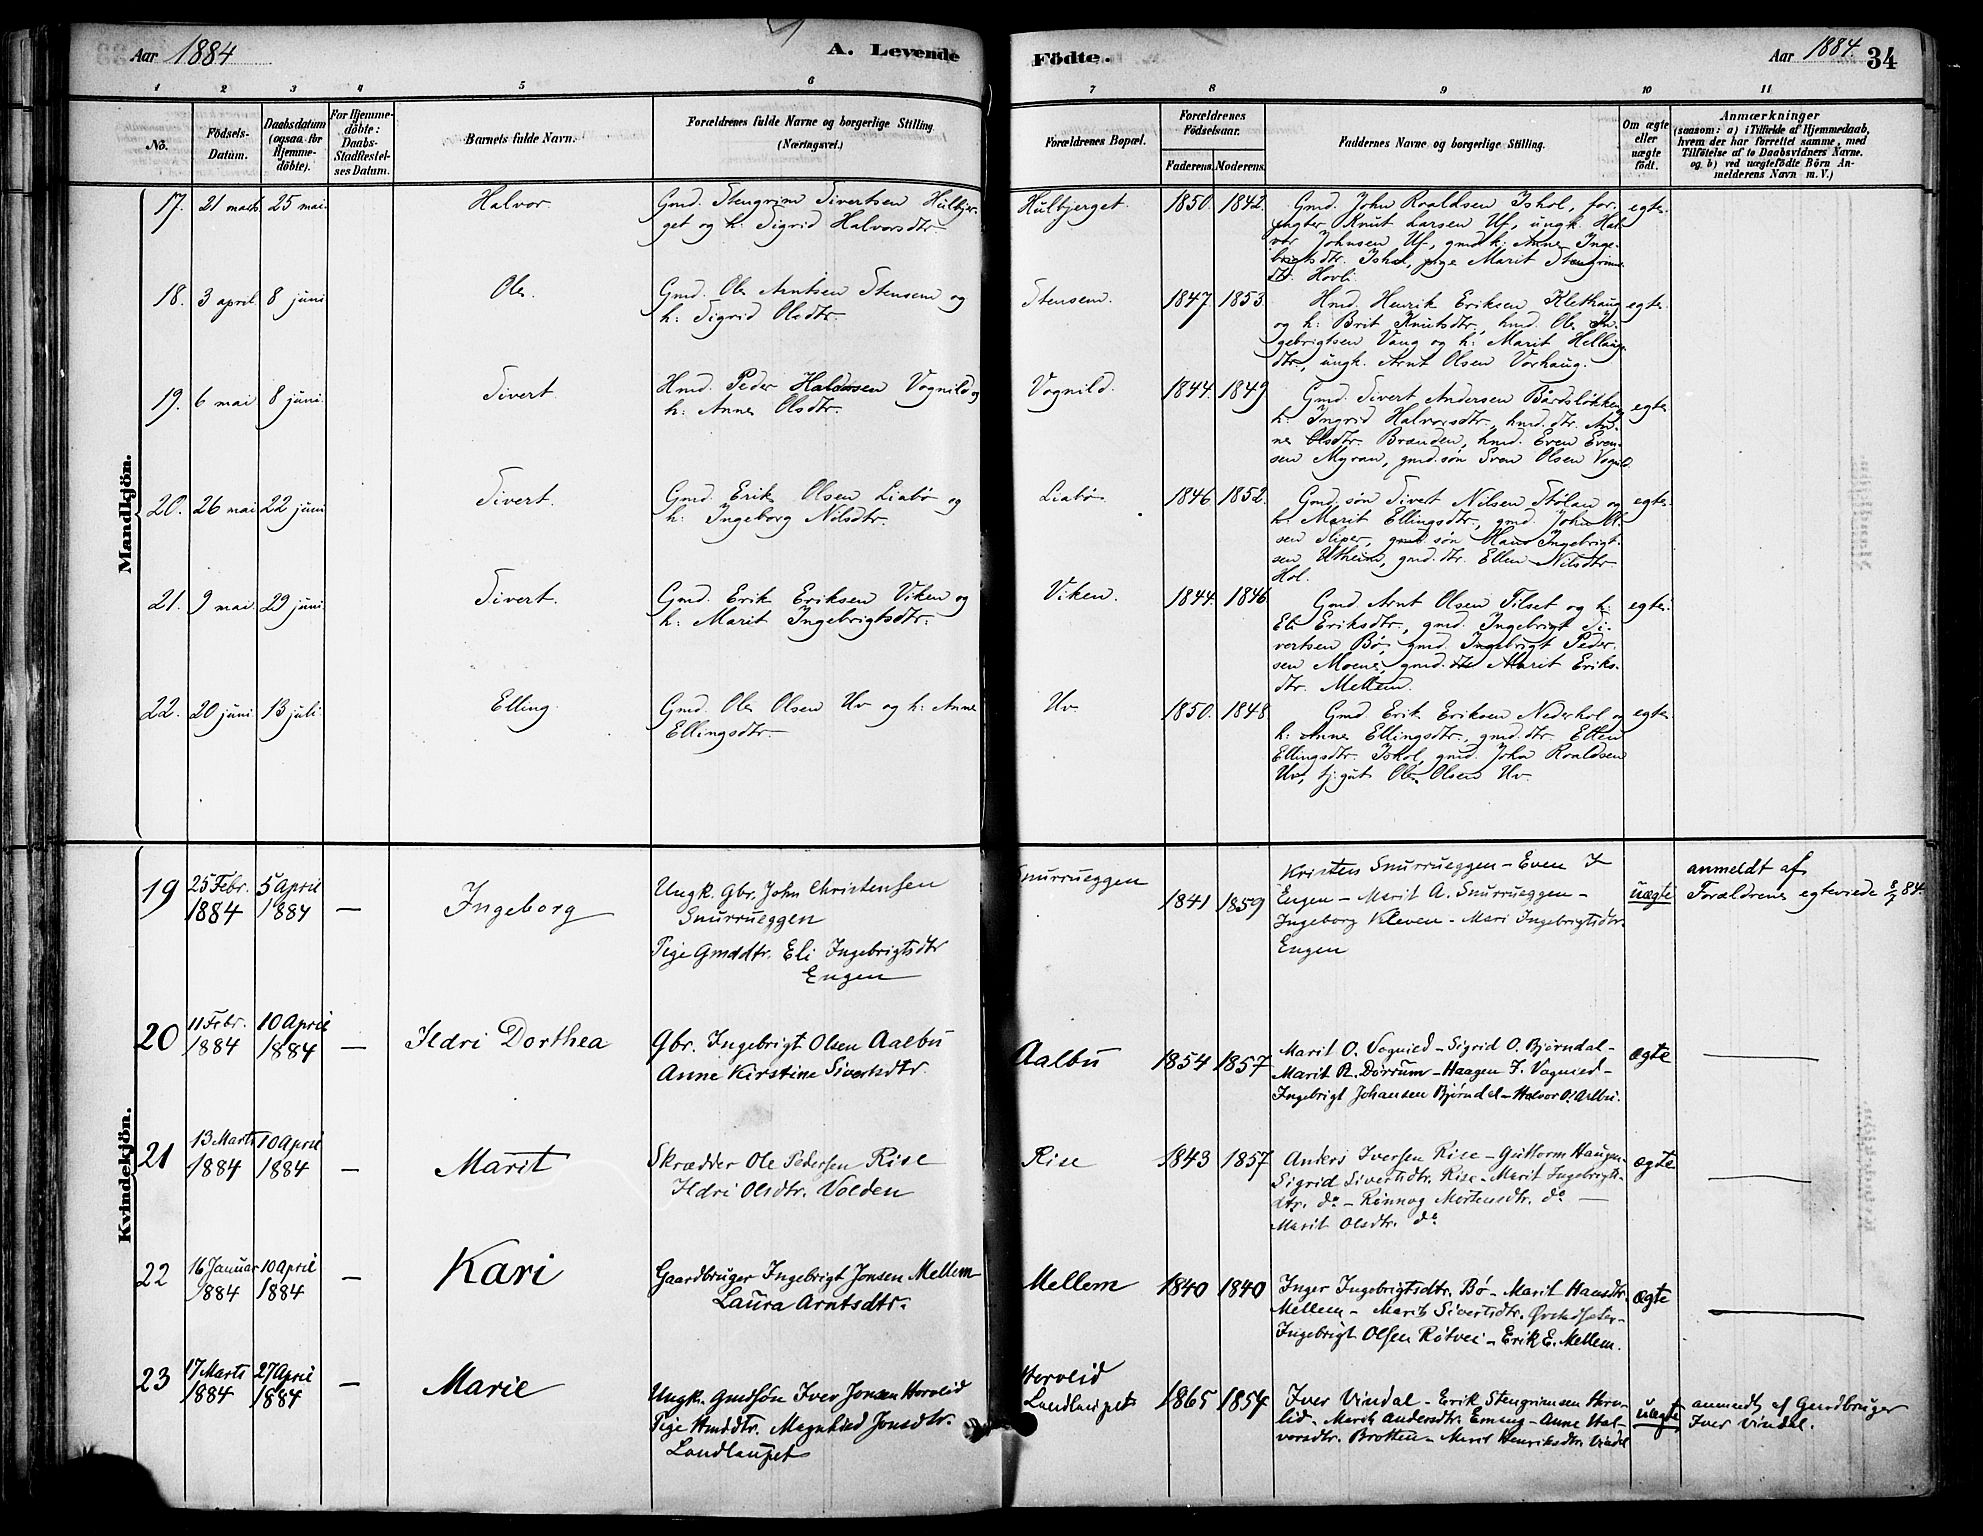 Aar 1884
A. Levende
Födte.
Aar 1884.
34
1 2 3 4 5 6 7 8 9 10 11
No.
Födsels-
Datum.
Daabsdatum
(ogsaa for
Hjemme-
döbte).
For Hjemme-
döbte:
Daabs-
Stadfestel-
ses Datum.
Barnets fulde Navn.
Forældrenes fulde Navne og borgerlige Stilling.
(Næringsvei.)
Forældrenes Bopæl.
Forældrenes
Födselsaar.
Faderens. Moderens.
Faddernes Navne og borgerlige Stilling.
Om ægte
eller
uægte
födt.
Anmærkninger
(saasom: a) i Tilfælde af Hjemmedaab,
hvem der har forrettet samme, med
Tilföielse af to Daabsvidners Navne.
og b) ved uægtefödte Börn An-
melderens Navn m. V.)
Mandkjön.
17. 21 marts 25 mai. Halvor
Gmd. Stengrim Sivertsen Hulbjer-
get og h: Sigrid Halvorsdtr.
Hulbjerget. 1850. 1842.
Gmd. John Roaldsen Ishol, for-
pagter Knut Larsen Uf, ungk. Hal
vor Johnsen Uf, gmdk: Anne Inge-
brigtsdtr. Ishol, pige Marit Stengrims
dtr. Hovli.
egte.
18. 3 april. 8 juni Ole.
Gmd. Ole Arntsen Stensem og
h: Sigrid Olsdtr.
Stensem. 1847. 1853.
Hmd. Henrik Eriksen Klethaug
og h: Brit Knutsdtr., hmd. Ole In-
gebrigtsen Vang og h: Marit Hellaugs
dtr., ungk. Arnt Olsen Vorhaug.
egte.
19. 6 mai 8 juni. Sivert.
Hmd. Peder Haldosen Vognild og
h: Anne Olsdtr.
Vognild. 1844. 1849
Gmd. Sivert Andersen Bårdsløkken
h: Ingrid Halvorsdtr., hmd. dtr. An-
ne Olsdtr. Brænden, hmd. Even Even-
sen Myran, gmd.søn Sven Olsen Vognild
egte.
20. 26 mai 22 juni Sivert.
Gmd. Erik Olsen Liabø og
h: Ingeborg Nilsdtr.
Liabø. 1846. 1852.
Gmd. søn Sivert Nilsen Stølan og
h: Marit Ellingsdtr., gmd. John
sen Sliper, gmd søn Hans Ingebrigt-
sen Utheim, gmd.dtr. Ellen Nilsdtr
Hol.
egte.
21. 9 mai. 29 juni. Sivert.
Gmd. Erik Eriksen Viken og
h: Marit Ingebrigtsdtr.
Viken. 1844. 1846
Gmd Arnt Olsen Tilset og h:
Eli Eriksdtr., gmd. Ingebrigt Si-
vertsen Bø, gmd. Ingebrigt Peder-
sen Moene, gmd. dtr Marit Eriks-
dtr. Mellem.
egte.
22. 20 juni. 13 juli. Elling.
Gmd. Ole Olsen Uv og h: Anne
Ellingsdtr.
Uv. 1850. 1848
Gmd Erik Eriksen Nederhol og
h: Anne Ellingsdtr., gmd.dtr. Ellen
Ellingsdtr. Ishol, gmd. John Roaldsen
Uv, tj.gut Ole Olsen Uv.
egte.
Kvindekjön.
19 25 Febr. 1884 5 April 1884 — Ingeborg
Ungk. Gbr. John Christensen
Snurrueggen
Pige Gmddtr. Eli Ingebrigtsdtr
Engen
Snurrueggen 1841 1859
Kristen Snurrueggen – Even I
Engen – Marit A. Snurrueggen –
Ingeborg Kleven – Mari Ingebrigtsdtr.
Engen
uægte
anmeldt af
Forældrene egteviede 84.
20 11 Febr. 1884 10 April 1884 — Ildri Dorthea
Gbr. Ingebrigt Olsen Aalbu
Anne Kirstine Sivertsdtr.
Aalbu 1854 1857
Marit O. Vognied – Sigrid O. Bjørndal –
Marit R. Dørrum – Haagen I. Vognied –
Ingebrigt Johansen Bjørndal – Halvor O. Aalbu.
ægte
21 13 Marts 1884 10 April 1884 — Marit
Skrædder Ole Pedersen Rise
Ildri Olsdtr. Volden
Rise 1843 1857
Ankers Iversen Rise – Guttorm Haugen –
Sigrid Sivertsdtr. Rise – Marit Ingebrigts-
dtr. do – Rønnog Mortensdtr. do –
Marit Olsdtr. do
ægte
22 16 Januar 1884 10 April 1884 — Kari
Gaardbruger Ingebrigt Jonsen Mellem
Laura Arntsdtr.
Mellem 1840 1840
Inger Ingebrigtsdtr. Bø – Marit Hansdtr.
Mellem – Marit Sivertsdtr. –
Ingebrigt Olsen Røtvei – Erik E. Mellem.
ægte
23 17 Marts 1884 27 April 1884 — Marie
Ungk. Gmdsøn Iver Jonsen Horvlid
Pige Hmddtr. Magnhild Jonsdtr.
Landlaupet
Horvlid
Landlaupet 1865 1854
Iver Vindal – Erik Stengrimsen Horv-
lid – Marit Andersdtr. – Anne Hal-
vorsdtr. Brotten – Marit Henriksdtr. Vindal
uægte
anmeldt af Gardbruger
Iver Vindal.